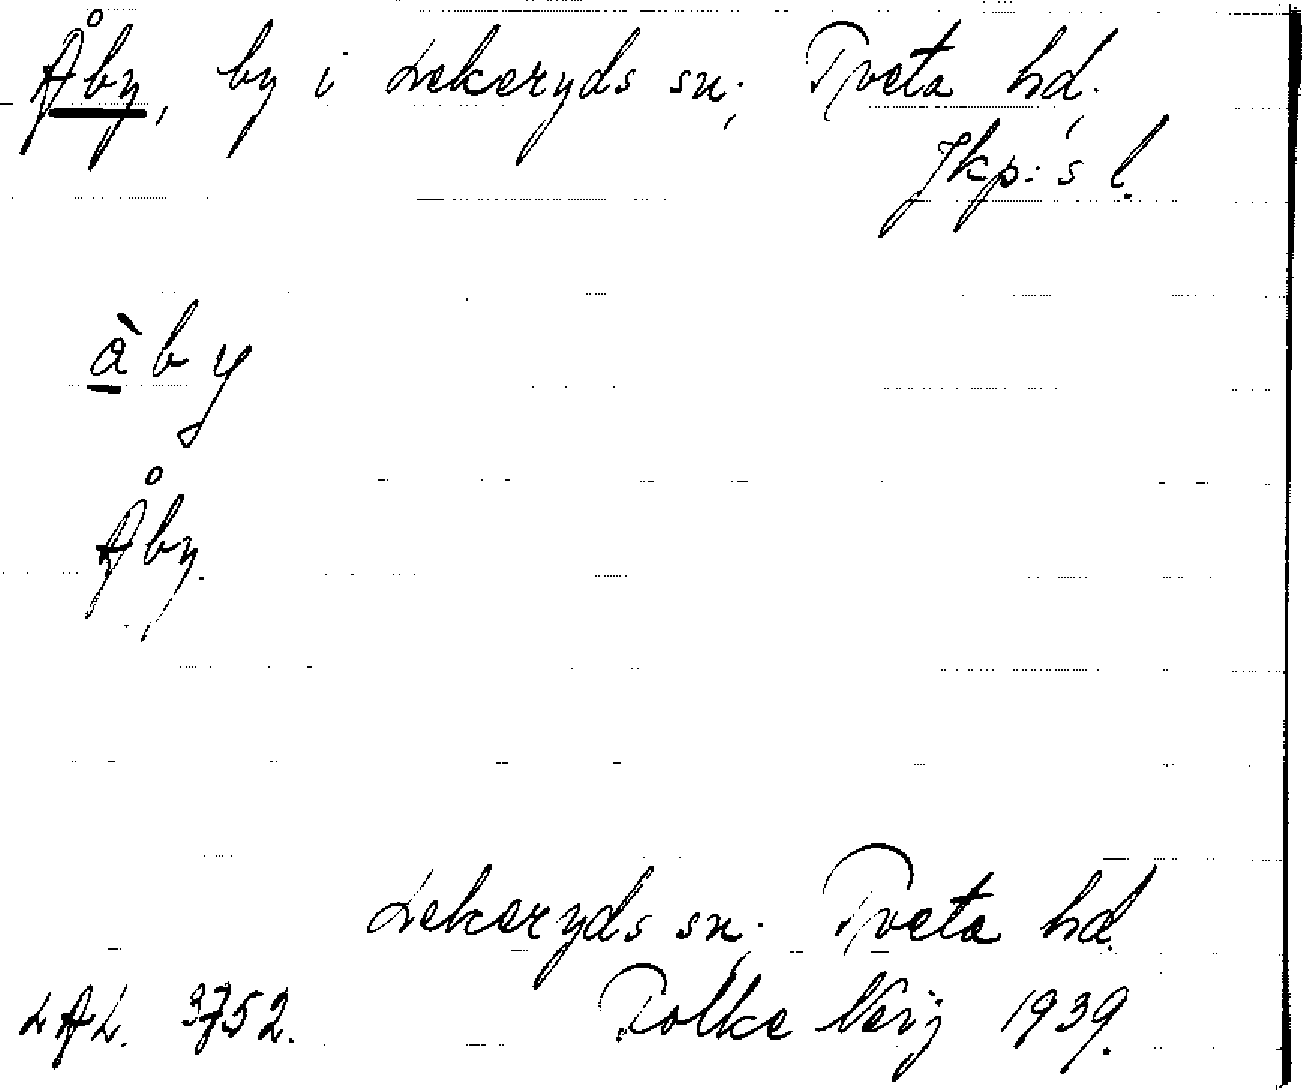 Åby, by i Lekeryds sn; Tveta hd.
Jkp:s l.
àby
Åby.
Lekeryds sn; Tveta hd.
LAL. 3752. Folke 1939.